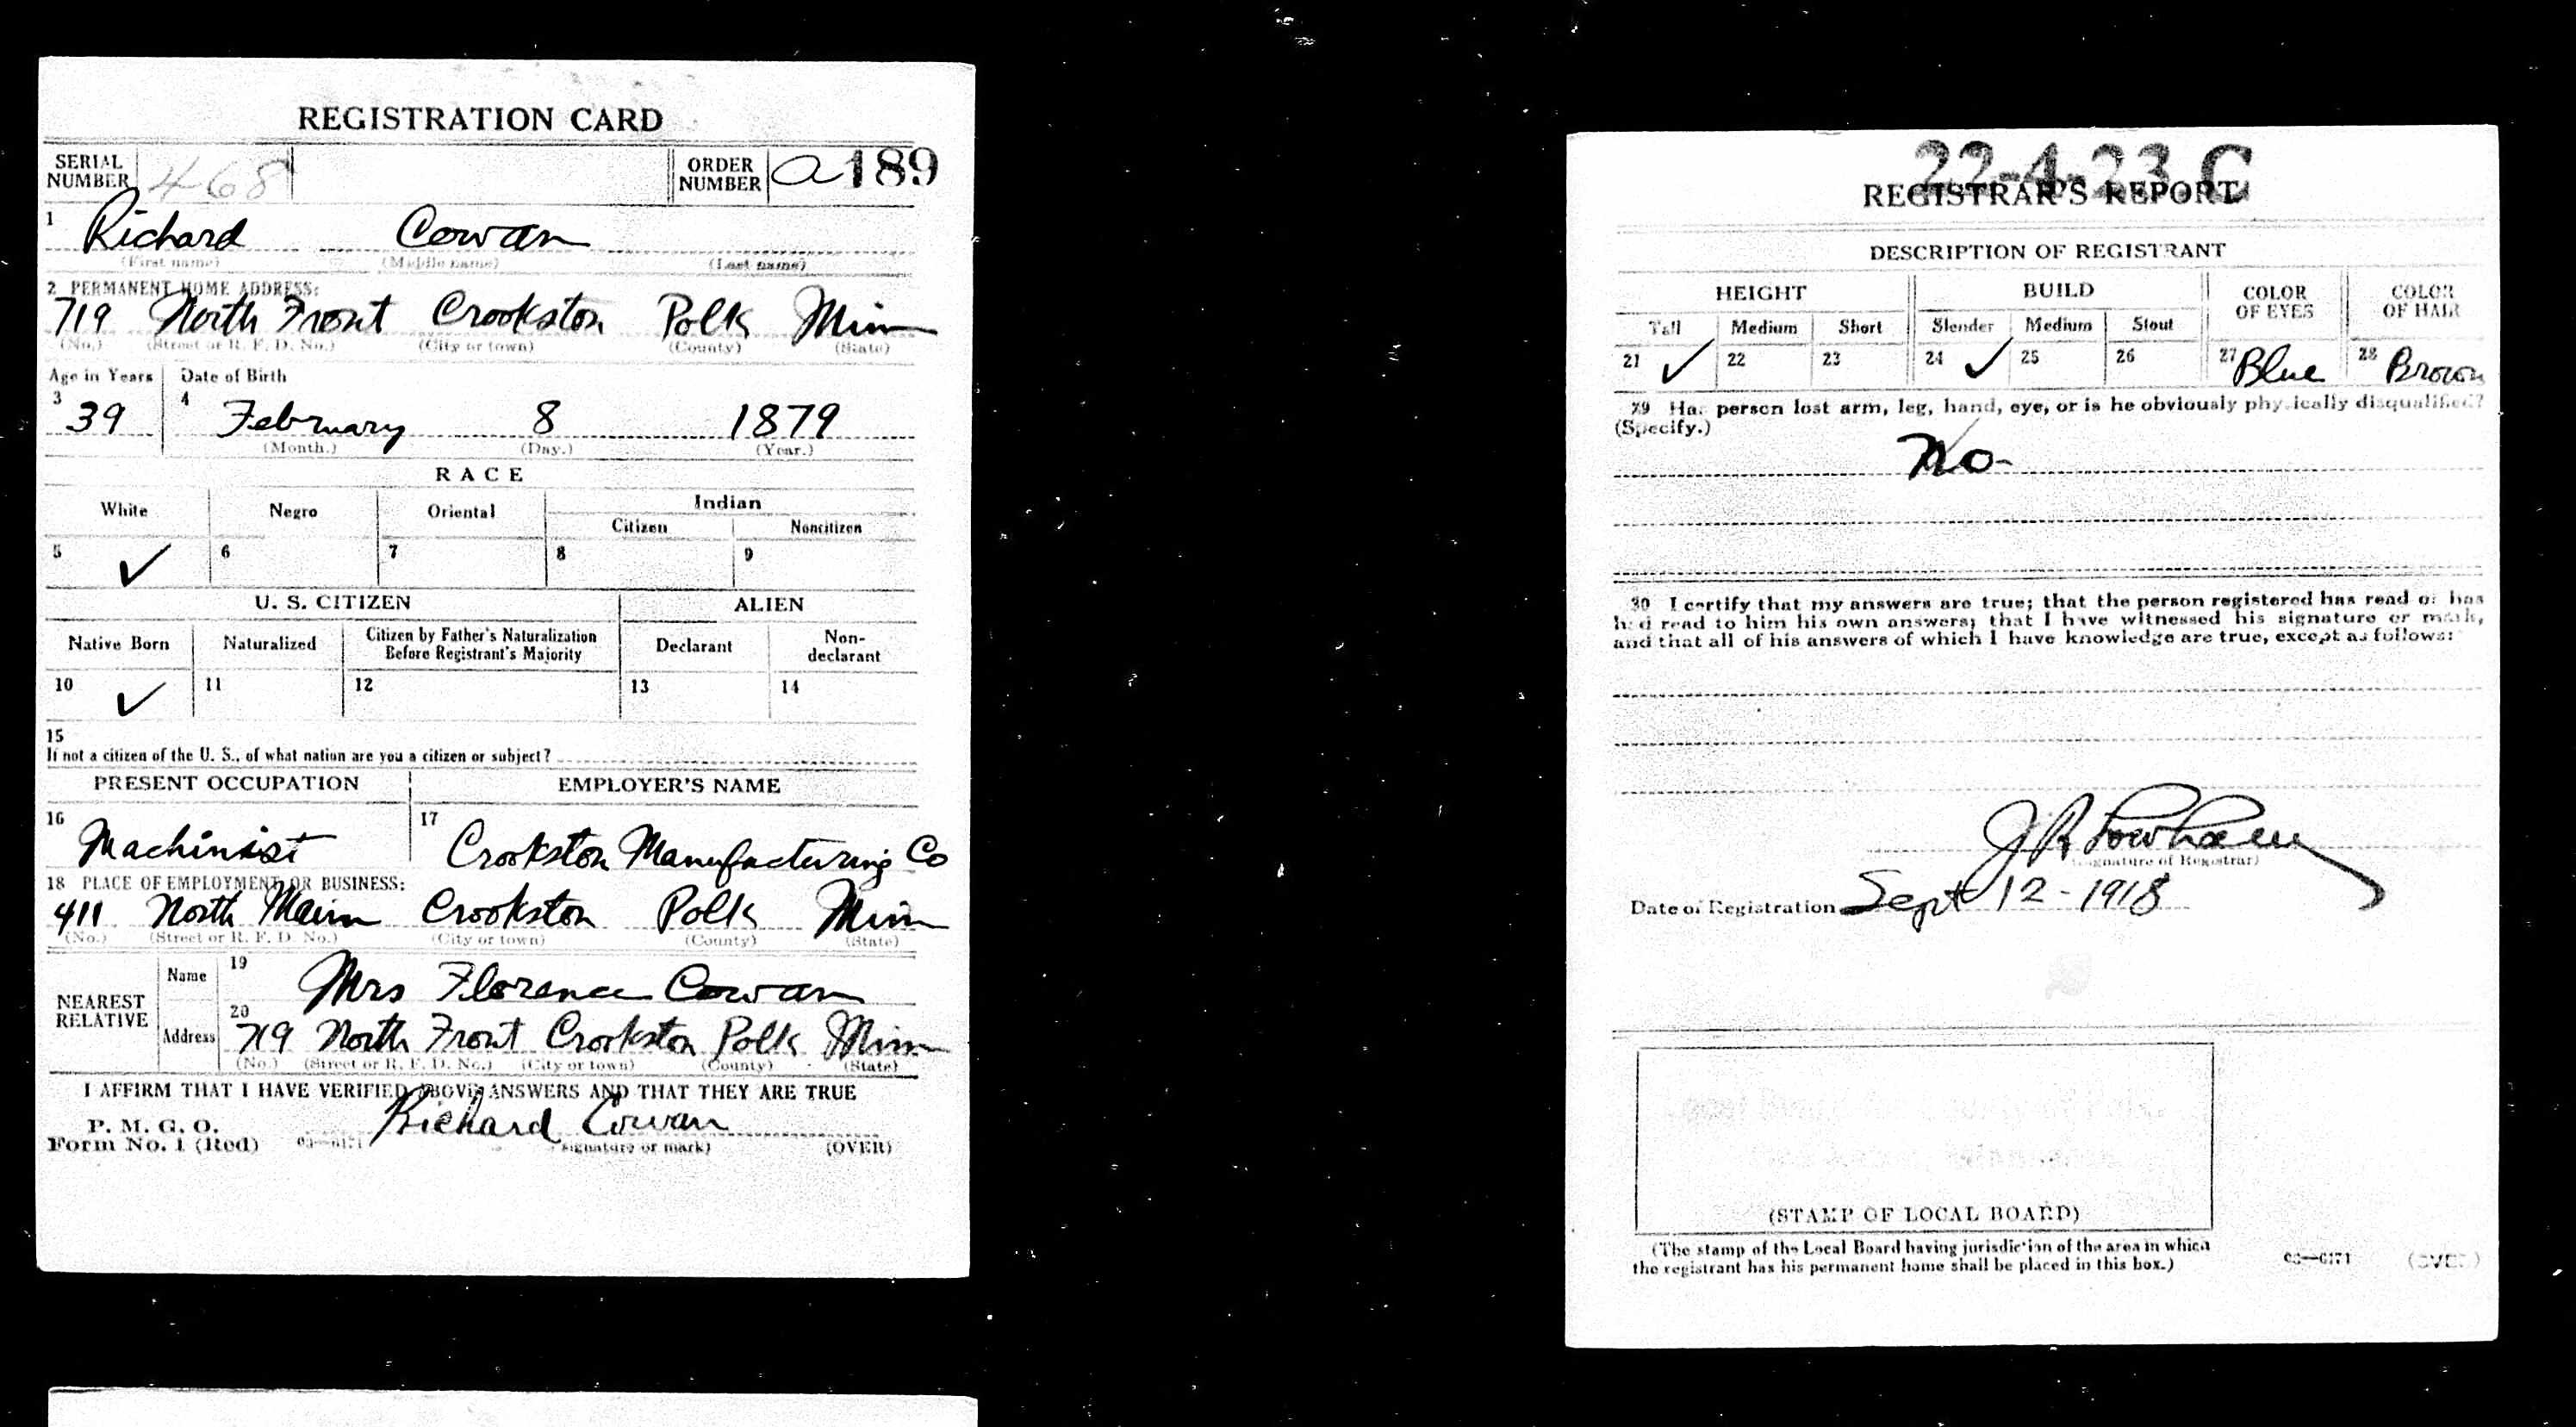 REGISTRATION CARD
SERIAL NUMBER 468 ORDER NUMBER a189
1 Richard Cowan
(First name) (Middle name) (Last name)
2 PERMANENT HOME ADDRESS:
719 North Front Crookston Polk Minn
(No.) (Street or R. F. D. No.) (City or town) (County) (State)
Age in Years Date of Birth
3 39 4 February 8 1879
(Month.) (Day.) (Year.)
RACE
White Negro Oriental Indian
Citizen Noncitizen
5 ✓ 6 7 8 9
U. S. CITIZEN ALIEN
Native Born Naturalized Citizen by Father's Naturalization Before Registrant's Majority Declarant Non-declarant
10 ✓ 11 12 13 14
15
If not a citizen of the U. S., of what nation are you a citizen or subject?
PRESENT OCCUPATION EMPLOYER'S NAME
16 Machinist 17 Crookston Manufacturing Co
18 PLACE OF EMPLOYMENT OR BUSINESS:
411 North Main Crookston Polk Minn
(No.) (Street or R. F. D. No.) (City or town) (County) (State)
NEAREST RELATIVE
Name 19 Mrs Florence Cowan
Address 20 719 North Front Crookston Polk Minn
(No.) (Street or R. F. D. No.) (City or town) (County) (State)
I AFFIRM THAT I HAVE VERIFIED ABOVE ANSWERS AND THAT THEY ARE TRUE
P. M. G. O.
Form No. 1 (Red) 03—6171 Richard Cowan
(Signature or mark) (OVER)
22-4-23 C
REGISTRAR'S REPORT
DESCRIPTION OF REGISTRANT
HEIGHT BUILD COLOR OF EYES COLOR OF HAIR
Tall Medium Short Slender Medium Stout
21 ✓ 22 23 24 ✓ 25 26 27 Blue 28 Brown
29 Has person lost arm, leg, hand, eye, or is he obviously physically disqualified?
(Specify.)
No-
30 I certify that my answers are true; that the person registered has read or has
had read to him his own answers; that I have witnessed his signature or mark,
and that all of his answers of which I have knowledge are true, except as follows:
J R
(Signature of Registrar)
Date of Registration Sept 12-1918
(STAMP OF LOCAL BOARD)
(The stamp of the Local Board having jurisdiction of the area in which
the registrant has his permanent home shall be placed in this box.)
03—6171 (OVER)